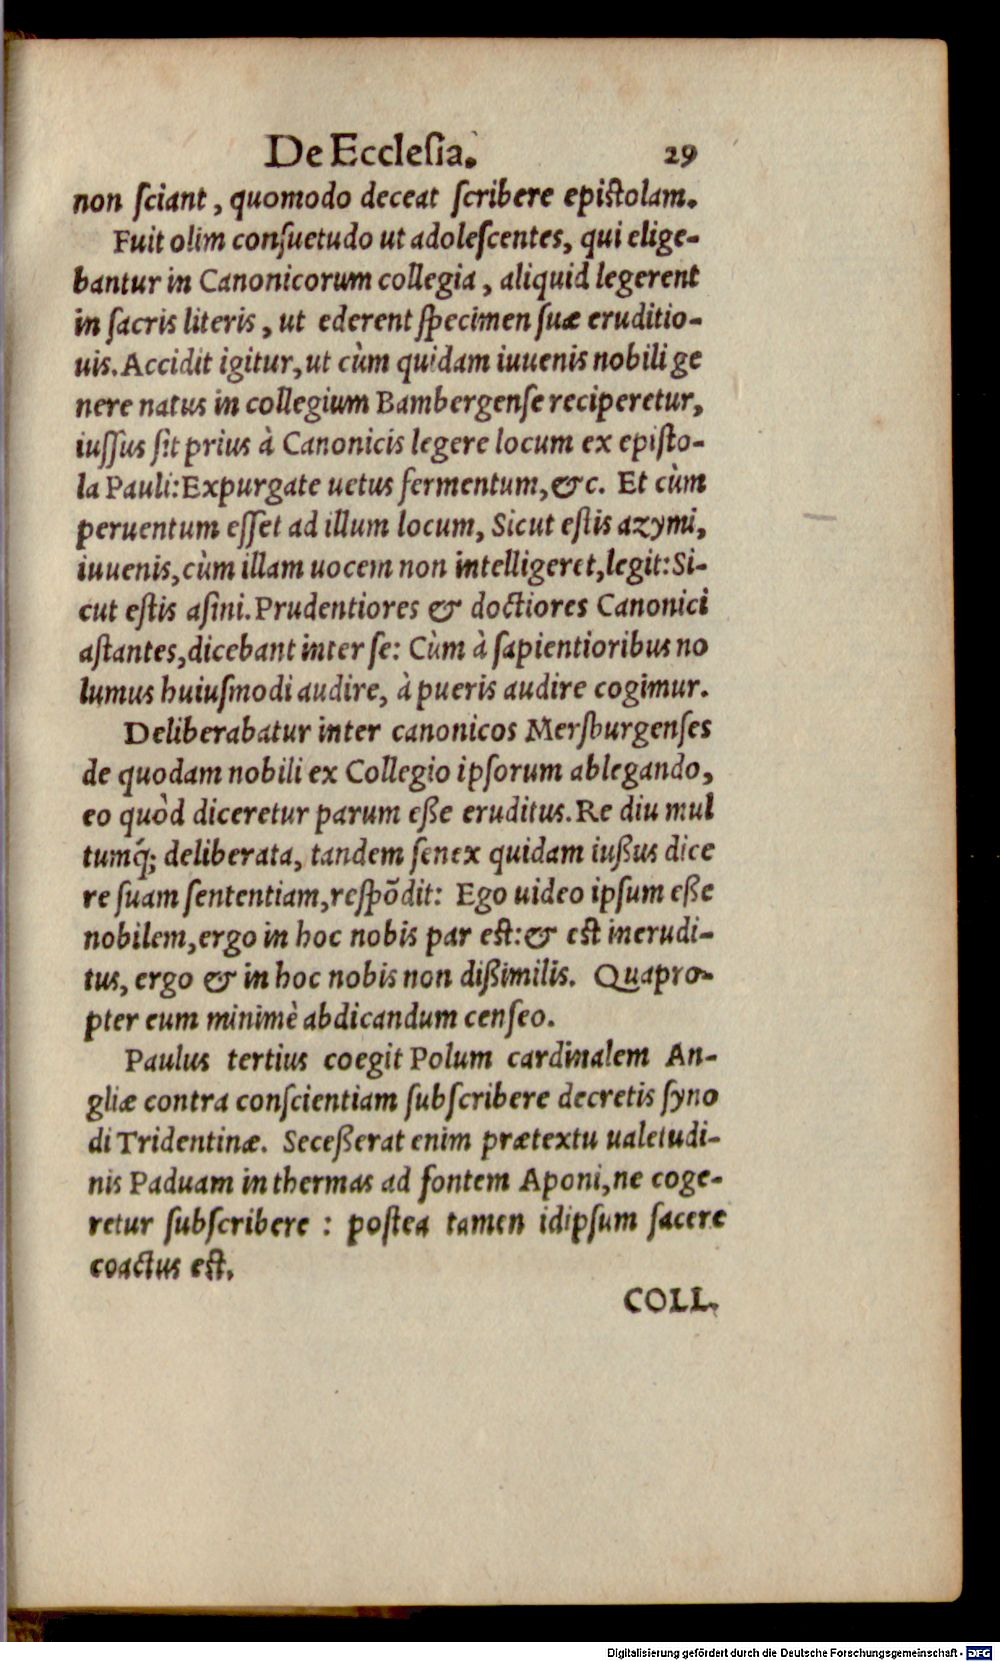 De Eccleſia. 29
non ſciant, quomodo deceat ſcribere epiſtolam.
Fuit olim conſuetudo ut adoleſcentes, qui elige-
bantur in Canonicorum collegia, aliquid legerent
in ſacris literis, ut ederent ſpecimen ſuæ eruditio-
uis. Accidit igitur, ut cùm quidam iuuenis nobili ge
nere natus in collegium Bambergenſe reciperetur,
iuſſus ſit prius à Canonicis legere locum ex epiſto-
la Pauli: Expurgate uetus fermentum, &c. Et cùm
peruentum eſſet ad illum locum, Sicut eſtis azymi,
iuuenis, cùm illam uocem non intelligeret, legit: Si-
cut eſtis aſini. Prudentiores & doctiores Canonici
aſtantes, dicebant inter ſe: Cùm à ſapientioribus no
lumus huiuſmodi audire, à pueris audire cogimur.
Deliberabatur inter canonicos Merſburgenſes
de quodam nobili ex Collegio ipſorum ablegando,
eo quòd diceretur parum eſſe eruditus. Re diu mul
tumq́; deliberata, tandem ſenex quidam iuſſus dice
re ſuam ſententiam, reſpõdit: Ego uideo ipſum eſſe
nobilem, ergo in hoc nobis par eſt: & eſt inerudi-
tus, ergo & in hoc nobis non diſſimilis. Quapro-
pter eum minimè abdicandum cenſeo.
Paulus tertius coegit Polum cardinalem An-
gliæ contra conſcientiam ſubſcribere decretis ſyno
di Tridentinæ. Seceſſerat enim prætextu ualetudi-
nis Paduam in thermas ad fontem Aponi, ne coge-
retur ſubſcribere: poſtea tamen idipſum facere
coactus eſt.
COLL.
Digitalisierung gefördert durch die Deutsche Forschungsgemeinschaft - DFG